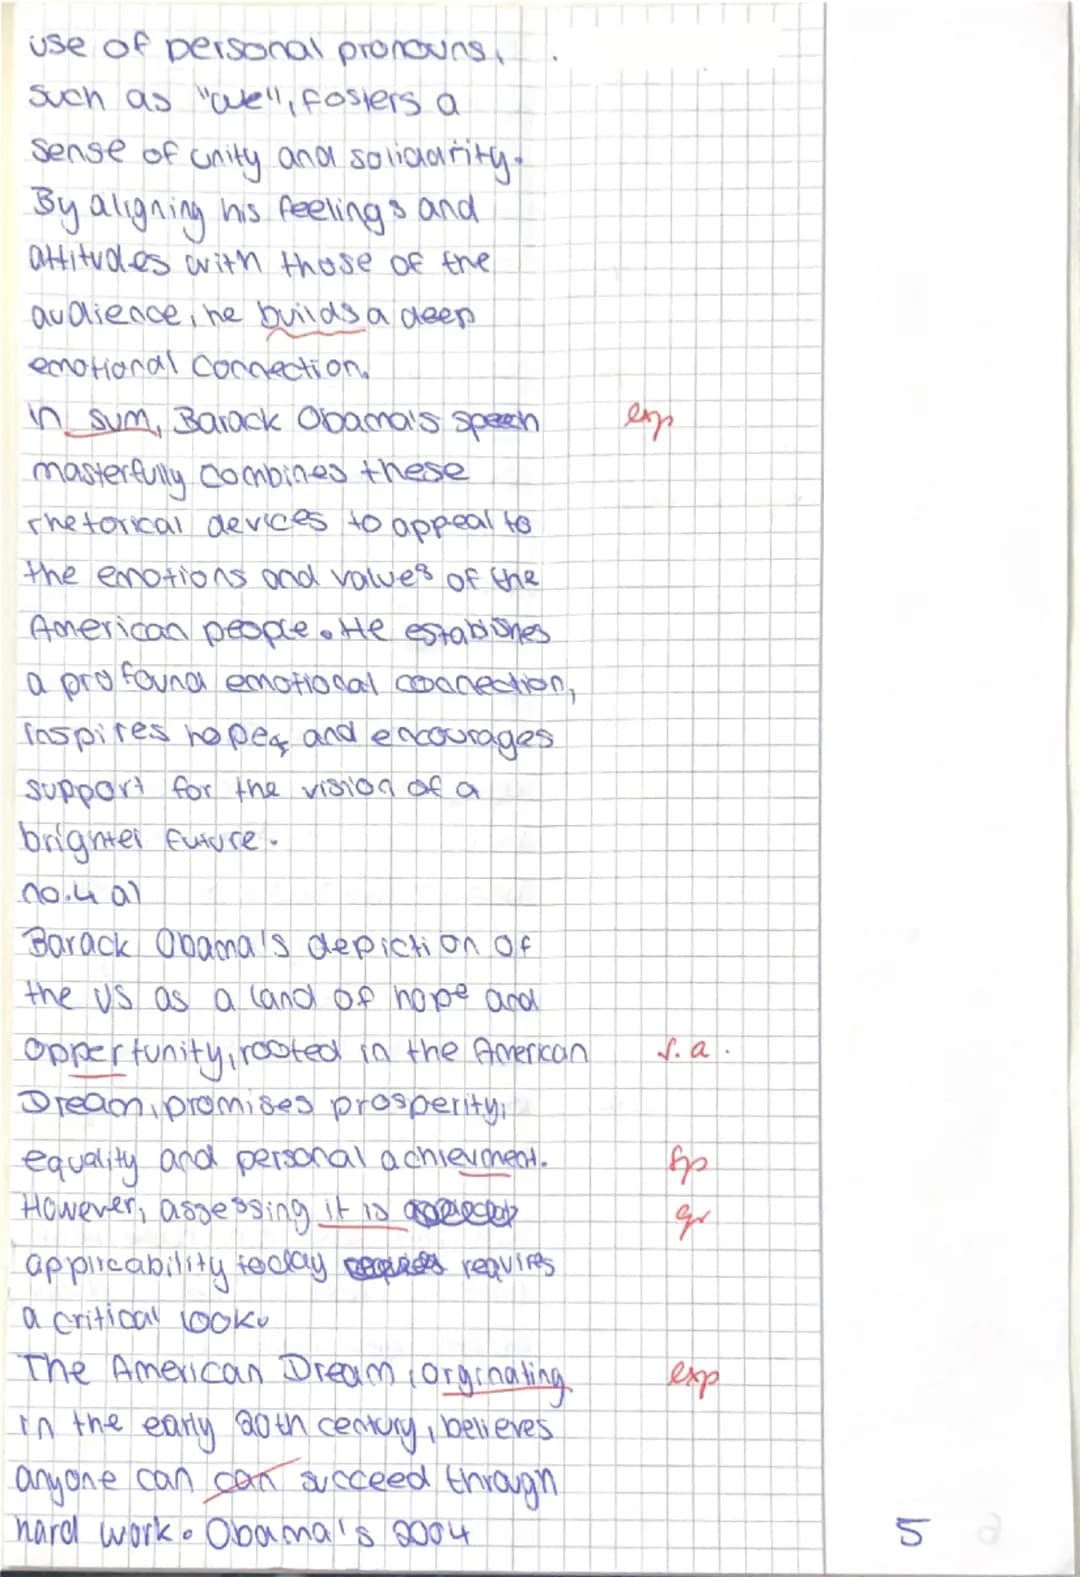 use of personal pronouns,
such as "we", fosters a
sense of unity and solidarity.
By aligning his feelings and
attitudes with those of the
audience, he builds a deep
emotional connection.
in sum, Barack Obama's speech exp
masterfully combines these
rhetorical devices to appeal to
the emotions and values of the
American people. He establishes
a profound emotional connection,
inspires hope, and encourages
support for the vision of a
brighter future.
no.4 a)
Barack Obama's depiction of
the US as a land of hope and
oppertunity, rooted in the American s.a.
Dream, promises prosperity,
equality and personal achievment. sp
However, assessing it is gr
applicability today requires
a critical look.
The American Dream, orginating exp
in the early 20th century, believes
anyone can can succeed through
hard work. Obama's 2004
5